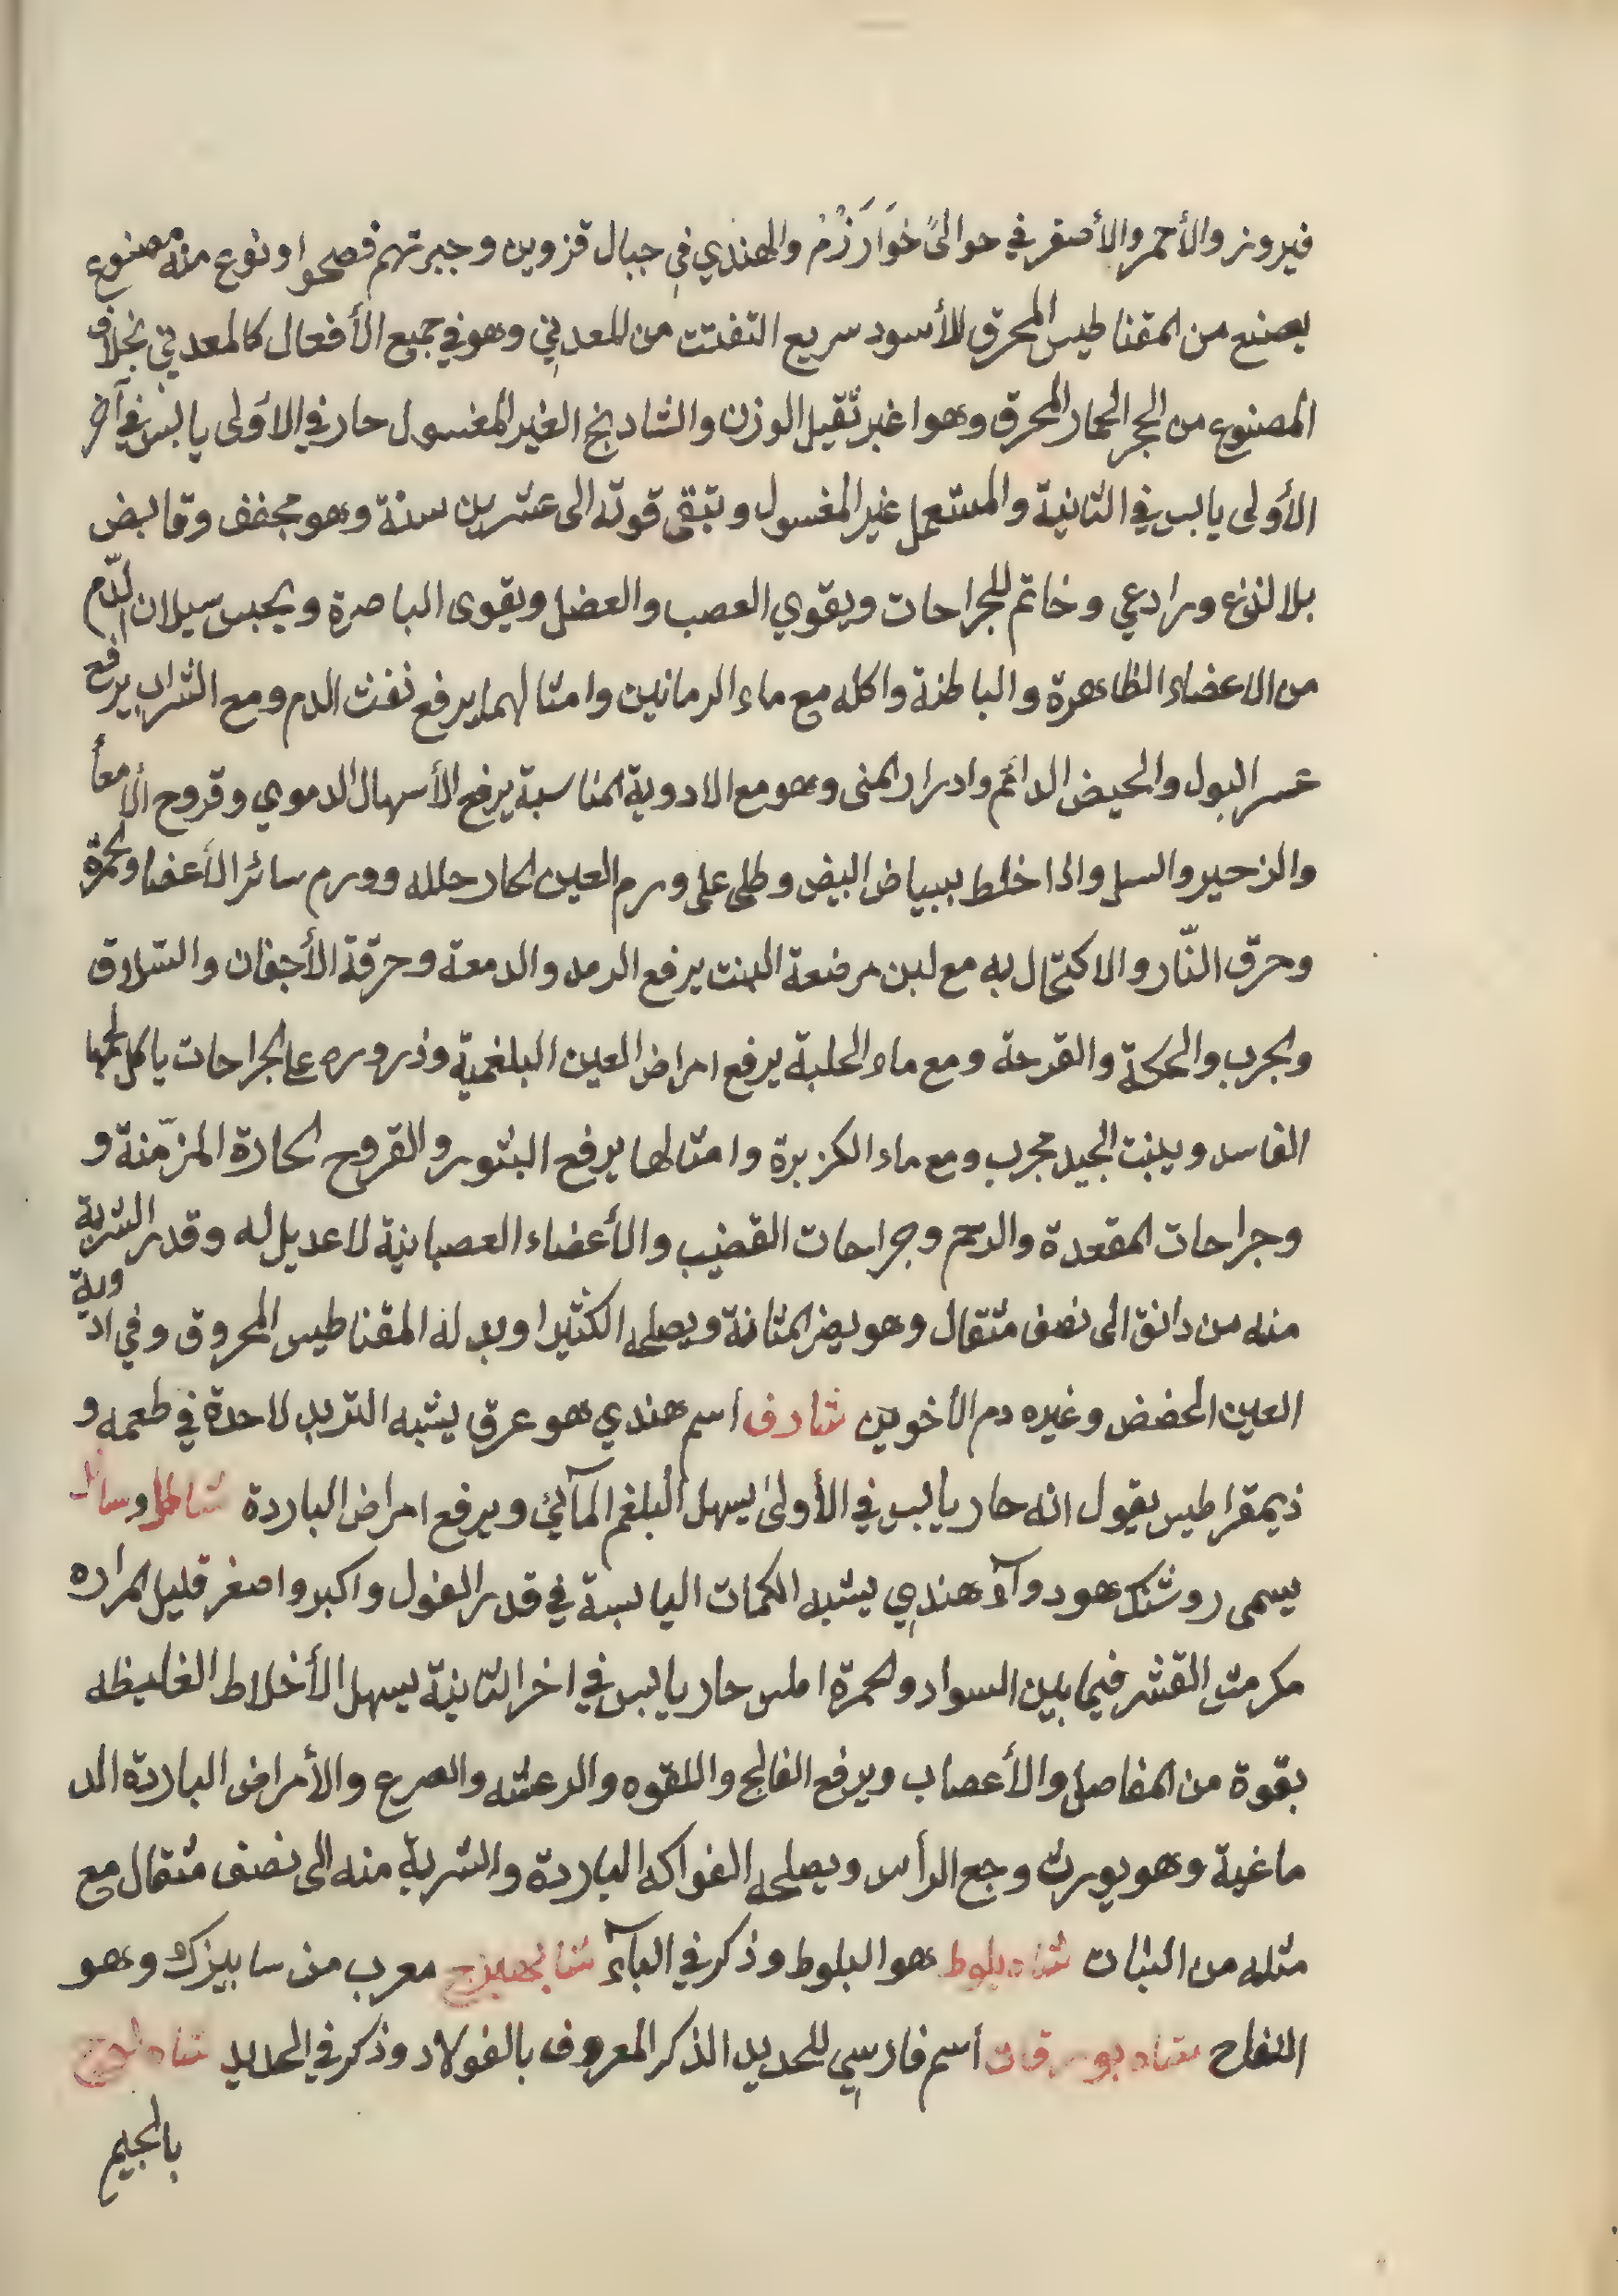 فيروز والأحمر والأصفر في حوالىً خوَارَزْمْ والهندي في جبال قزوين وجبرتهم فصحوا ونوع منه مصنوع
يصنع من المقناطيس المحرق للأسود سريع التفتت من المعدني وهو في جميع الأفعال كالمعدني بخلاف
المصنوع من الحجر الحمار المحرق وهو اغبر ثقيل الوزن والشادنج الغير المغسول حار في الأولى يابس في آخر
الأولى يابس في الثانية والمستعمل غير المغسول وتبقى قوته الى عشرين سنة وهو مجفف وقابض
بلا لذع ورادعي وخاتم للجراحات ويقوي العصب والعضل ويقوى الباصرة ويحبس سيلان الدّم
من الاعضاء الظاهرة والباطنة واكله مع ماء الرمانين وامثالهما يرفع نفث الدم ومع الشراب يرفع
عسر البول والحيض الدائم وادرار المنى وهو مع الادوية المناسبة يرفع الأسهال الدموي وقروح الأمعأ
والزحير والسل واذا خلط ببياض البيض وطلى على ورم العين الحار حلله وورم سائر الأعضا والحمرة
وحرق النّار والاكتحال به مع لبن مرضعة البنت يرفع الرمد والدمعة وحرقة الأجفان والسّلاق
والجرب والحكة والقرحة ومع ماء الحلبة يرفع امراض العين البلغمية وذروره على الجراحات ياكل لحمها
الفاسد وينبت الجيد مجرب ومع ماء الكزبرة وامثالها يرفع البثور والقروح الحادة المزّمنة و
وجراحات المقعدة والرحم وجراحات القضيب والأعضاء العصبانية لا عديل له وقدر الشربة
منه من دانق الى نصف مثقال وهو يضر المثانة ويصلحه الكثيرا وبدله المقناطيس المحروق وفي ادوية
العين الحضض وغيره دم الأخوين شارف اسم هندي هو عرق يشبه التربد لا حدة في طعمه و
ذيمقراطيس يقول انه حار يابس في الأولىٰ يسهل البلغم المآئي ويرفع امراض الباردة شاطل وسائل
يسمى روشنك هو دوآء هندي يشبه الكمات اليابسة في قدر الفول واكبر واصغر قليل المراره
مكرمش القشر فيما بين السواد والحمرة املس حار يابس في اخر الثانية يسهل الأخلاط الغليظه
بقوة من المفاصل والأعصاب ويرفع الفالج واللقوه والرعشه والصرع والأمراض الباردة الد
ماغية وهو يورث وجع الرأس ويصلحه الفواكه الباردة والشربة منه الى نصف مثقال مع
مثله من النبات شاه بلوط هو البلوط وذكر في البآء شابيزج معرب من سابيزك وهو
التفاح شاه بورقان اسم فارسي للحديد الذكر المعروف بالفولاد وذكر في الحديد
بالجيم